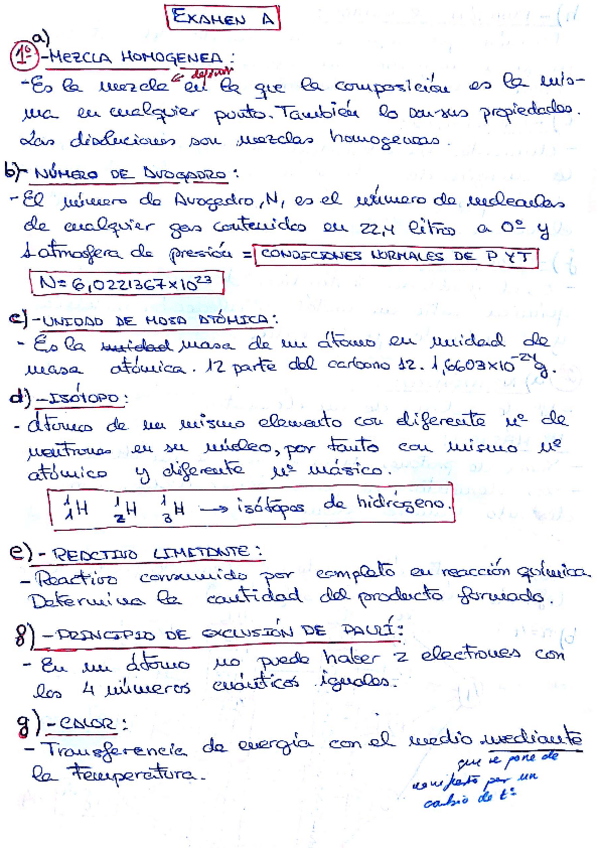 EXAMEN A
a)
1º - MEZCLA HOMOGENEA :
- Es la mezcla en la que la composición es la mis-
ma en cualquier punto. También lo son sus propiedades.
Las disoluciones son mezclas homogeneas.
b)- NÚMERO DE AVOGADRO :
- El número de Avogadro, N, es el número de moleculas
de cualquier gas contenidos en 22,4 litros a 0º y
1 atmosfera de presión = CONDICIONES NORMALES DE P Y T
N = 6,0221367x10²³
c)- UNIDAD DE MASA ATÓMICA :
- Es la unidad masa de un átomo en unidad de
masa atómica. 12 parte del carbono 12. 1,6603x10⁻²⁴g.
d) - ISÓTOPO :
- Átomo de un mismo elemento con diferente nº de
neutrones en su núcleo, por tanto con mismo nº
atómico y diferente nº másico.
¹₁H ¹₂H ¹₃H → isótopos de hidrógeno.
e) - REACTIVO LIMITANTE :
- Reactivo consumido por completo en reacción química.
Determina la cantidad del producto formado.
f) - PRINCIPIO DE EXCLUSIÓN DE PAULÍ :
- En un átomo no puede haber 2 electrones con
los 4 números cuánticos iguales.
g) - CALOR :
- Transferencia de energía con el medio mediante
la temperatura.
que se pone de
manifiesto por un
cambio de tª